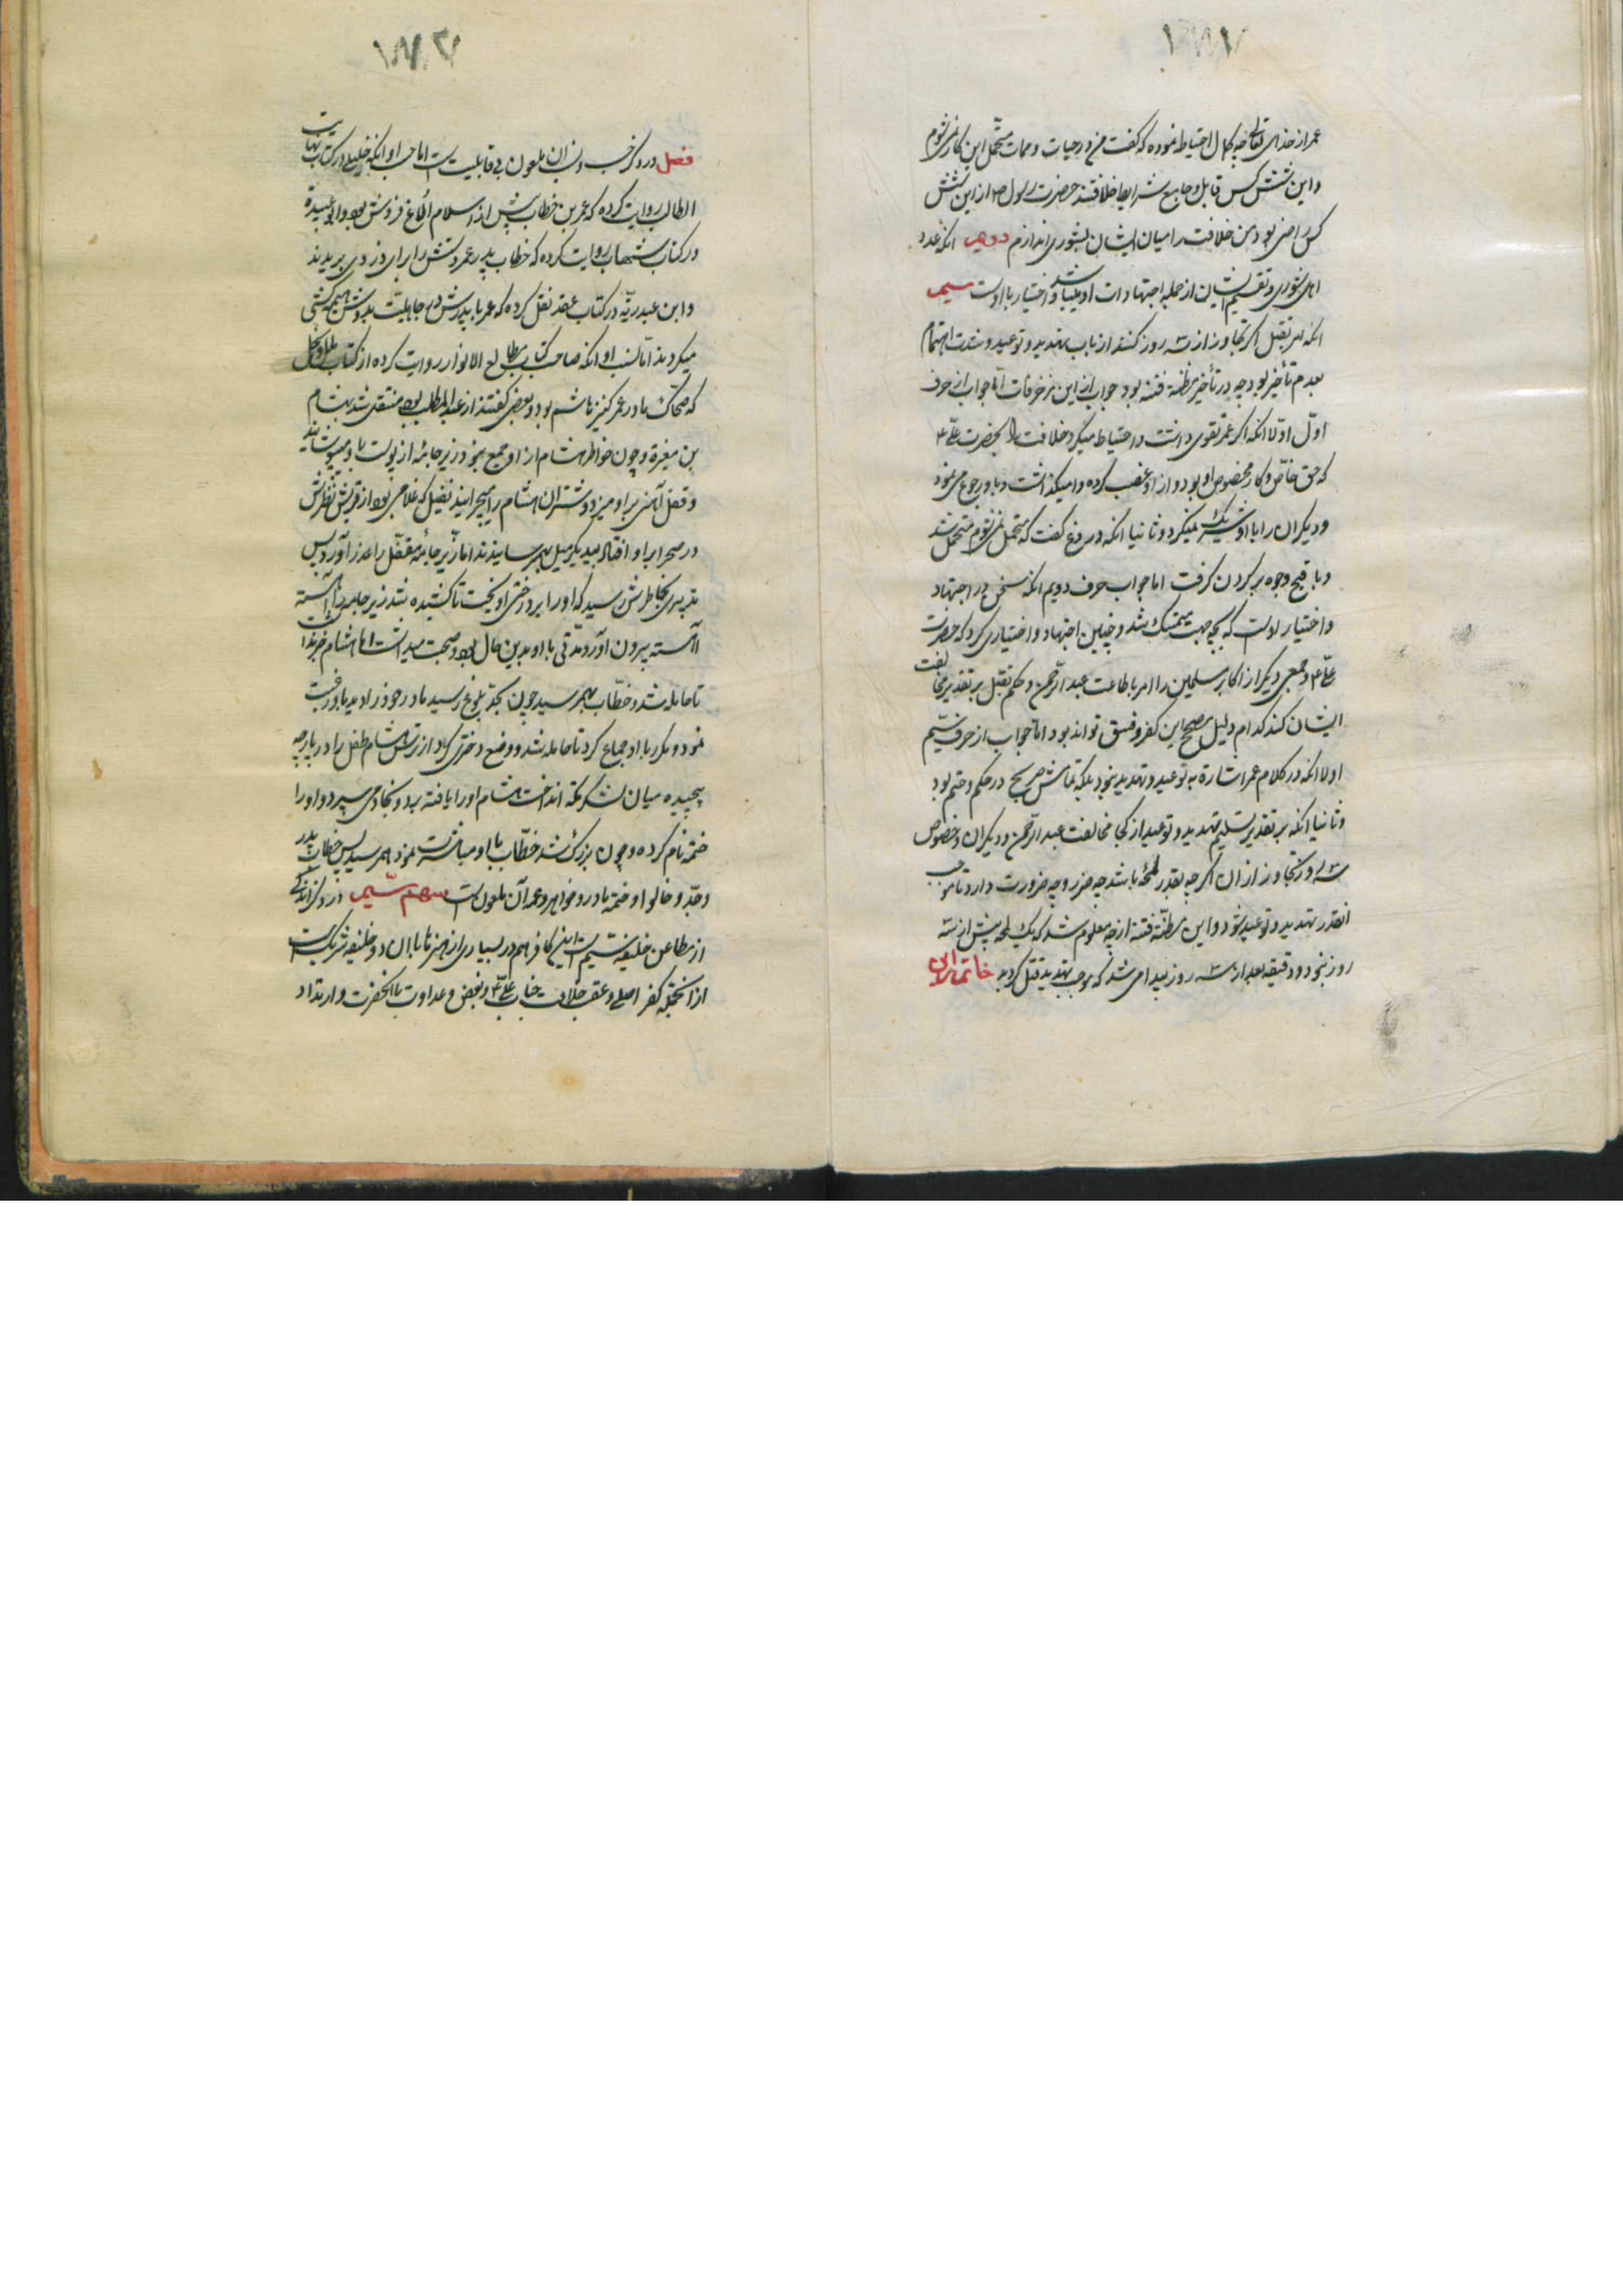 عمر از خدای تعالی چه کمال احتیاط نموده که گفت من در حیات و ممات متحمل این کار نمی‌شوم
و این شش کس قابل و جامع شرایط خلافتند حضرت رسول ص از این شش
کس راضی بود من خلافت را میان ایشان بشوری اندازم دویم انکه عدد
اهل شوری و تقسیم ایشان از جمله اجتهادات او میباشد و اختیار با اوست سیم
انکه امر بقتل اکر تجاوز از سه روز کنند از باب تهدید و توعید و شدت اهتمام
بعدم تأخیر بود چه در تأخیر مظنه فتنه بود جواب از این مزخرفات اما جواب از حرف
اول اولا انکه اکر عمر تقوی داشت و احتیاط میکرد خلافت را بحضرت علی ع
که حق خاص و کار مخصوص او بود و از او غصب کرده وامیکذاشت و باو رجوع می نمود
و دیکران را با او شریک نمیکرد و ثانیا انکه دروغ گفت که متحمل نمی‌شوم متحمل شد
و باقبح وجوه بر کردن کرفت اما جواب حرف دویم انکه سخن در اجتهاد
و اختیار اوست که بچه جهت متمسک شد و چنین اجتهاد و اختیاری کرد که حضرت
علی ع و جمعی دیکر از اکابر مسلمین را امر باطاعت عبد الرحمن و حکم بقتل بر تقدیر مخالفت
ایشان کند کدام دلیل مصحح این کفر و فسق تواند بود اما جواب از حرف سیم
اولا انکه در کلام عمر اشاره به توعید و تهدید نبود بلکه کلامش صریح در حکم و حتم بود
و ثانیا انکه بر تقدیر تسلیم تهدید و توعید از کجا مخالفت عبد الرحمن و دیکران و خصوص
سه روز و تجاوز از ان اکر چه بقدر لمحه باشد چه ضرر و چه ضرورت دارد تا موجب
انقدر تهدید و توعید شود و این مظنه فتنه از چه معلوم شد که یک لمحه پیش از سه
روز نبود و دقیقه بعد از سه روز پیدا می شد که موجب تهدید بقتل کردید خاتمه این
فصل در ذکر حسب و نسب ان ملعون بی قابلیت است اما حسب او انکه حنبلی در کتاب نهایت
الطالب روایت کرده که عمر بن خطاب پیش از اسلام الاغ فروش بود و ابو عبیده
در کتاب شهاب روایت کرده که خطاب پدر عمر دستش را برای دزدی بریدند
و ابن عبد ربه در کتاب عقد نقل کرده که عمر با پدرش در جاهلیت بدوش هیمه کشی
میکردند اما نسب او انکه صاحب کتاب مطالع الانوار روایت کرده از کتاب ملل و نحل
که ضحاک مادر عمر کنیز هاشم بود و بعضی گفتند از عبد المطلب بود منتقل شد بهشام
بن مغیره و چون خواطر هشام از او جمع نبود زیر جامه از پوست باو میپوشانید
و قفل آهنی بر او میزد و شتران هشام را میچرانید نفیل که غلامی بود از قریش نظرش
در صحرا بر او افتاد بیکدیکر میل بهم رسانیدند اما زیر جامه مقفل را عذر آورد پس
تدبیری بخاطرش رسید که او را بر درختی او یخت تا کشیده شد زیر جامه را آهسته
آهسته بیرون آورد مدتی با او بدین حال بود و صحبت میداشت اما هشام خبر ندا
تا حامله شد و خطاب بهم رسید چون بحد بلوغ رسید مادر خود را دید باو رغبت
نمود و مکرر با او جماع کرد تا حامله شد و وضع دختری کرد از ترس هشام طفل را در پارچه
پیچیده میان لشکر مکه انداخت هشام او را یافته برد و بخادمی سپرد و او را
حنتمه نام کرده و چون بزرک شد خطاب با او مباشرت نمود عمر بهم رسید پس خطاب پدر
و جد و خالو او حنتمه مادر و خواهر و عمه آن ملعونست سهم سیم در ذکر اندکی
از مطاعن خلیفه سیم است این کافر هم در بسیاری از هنرها با ان دو خلیفه شریک است
از انجمله کفر اصلی و غصب خلافت جناب علی ع و بغض و عداوت با انحضرت و ارتداد